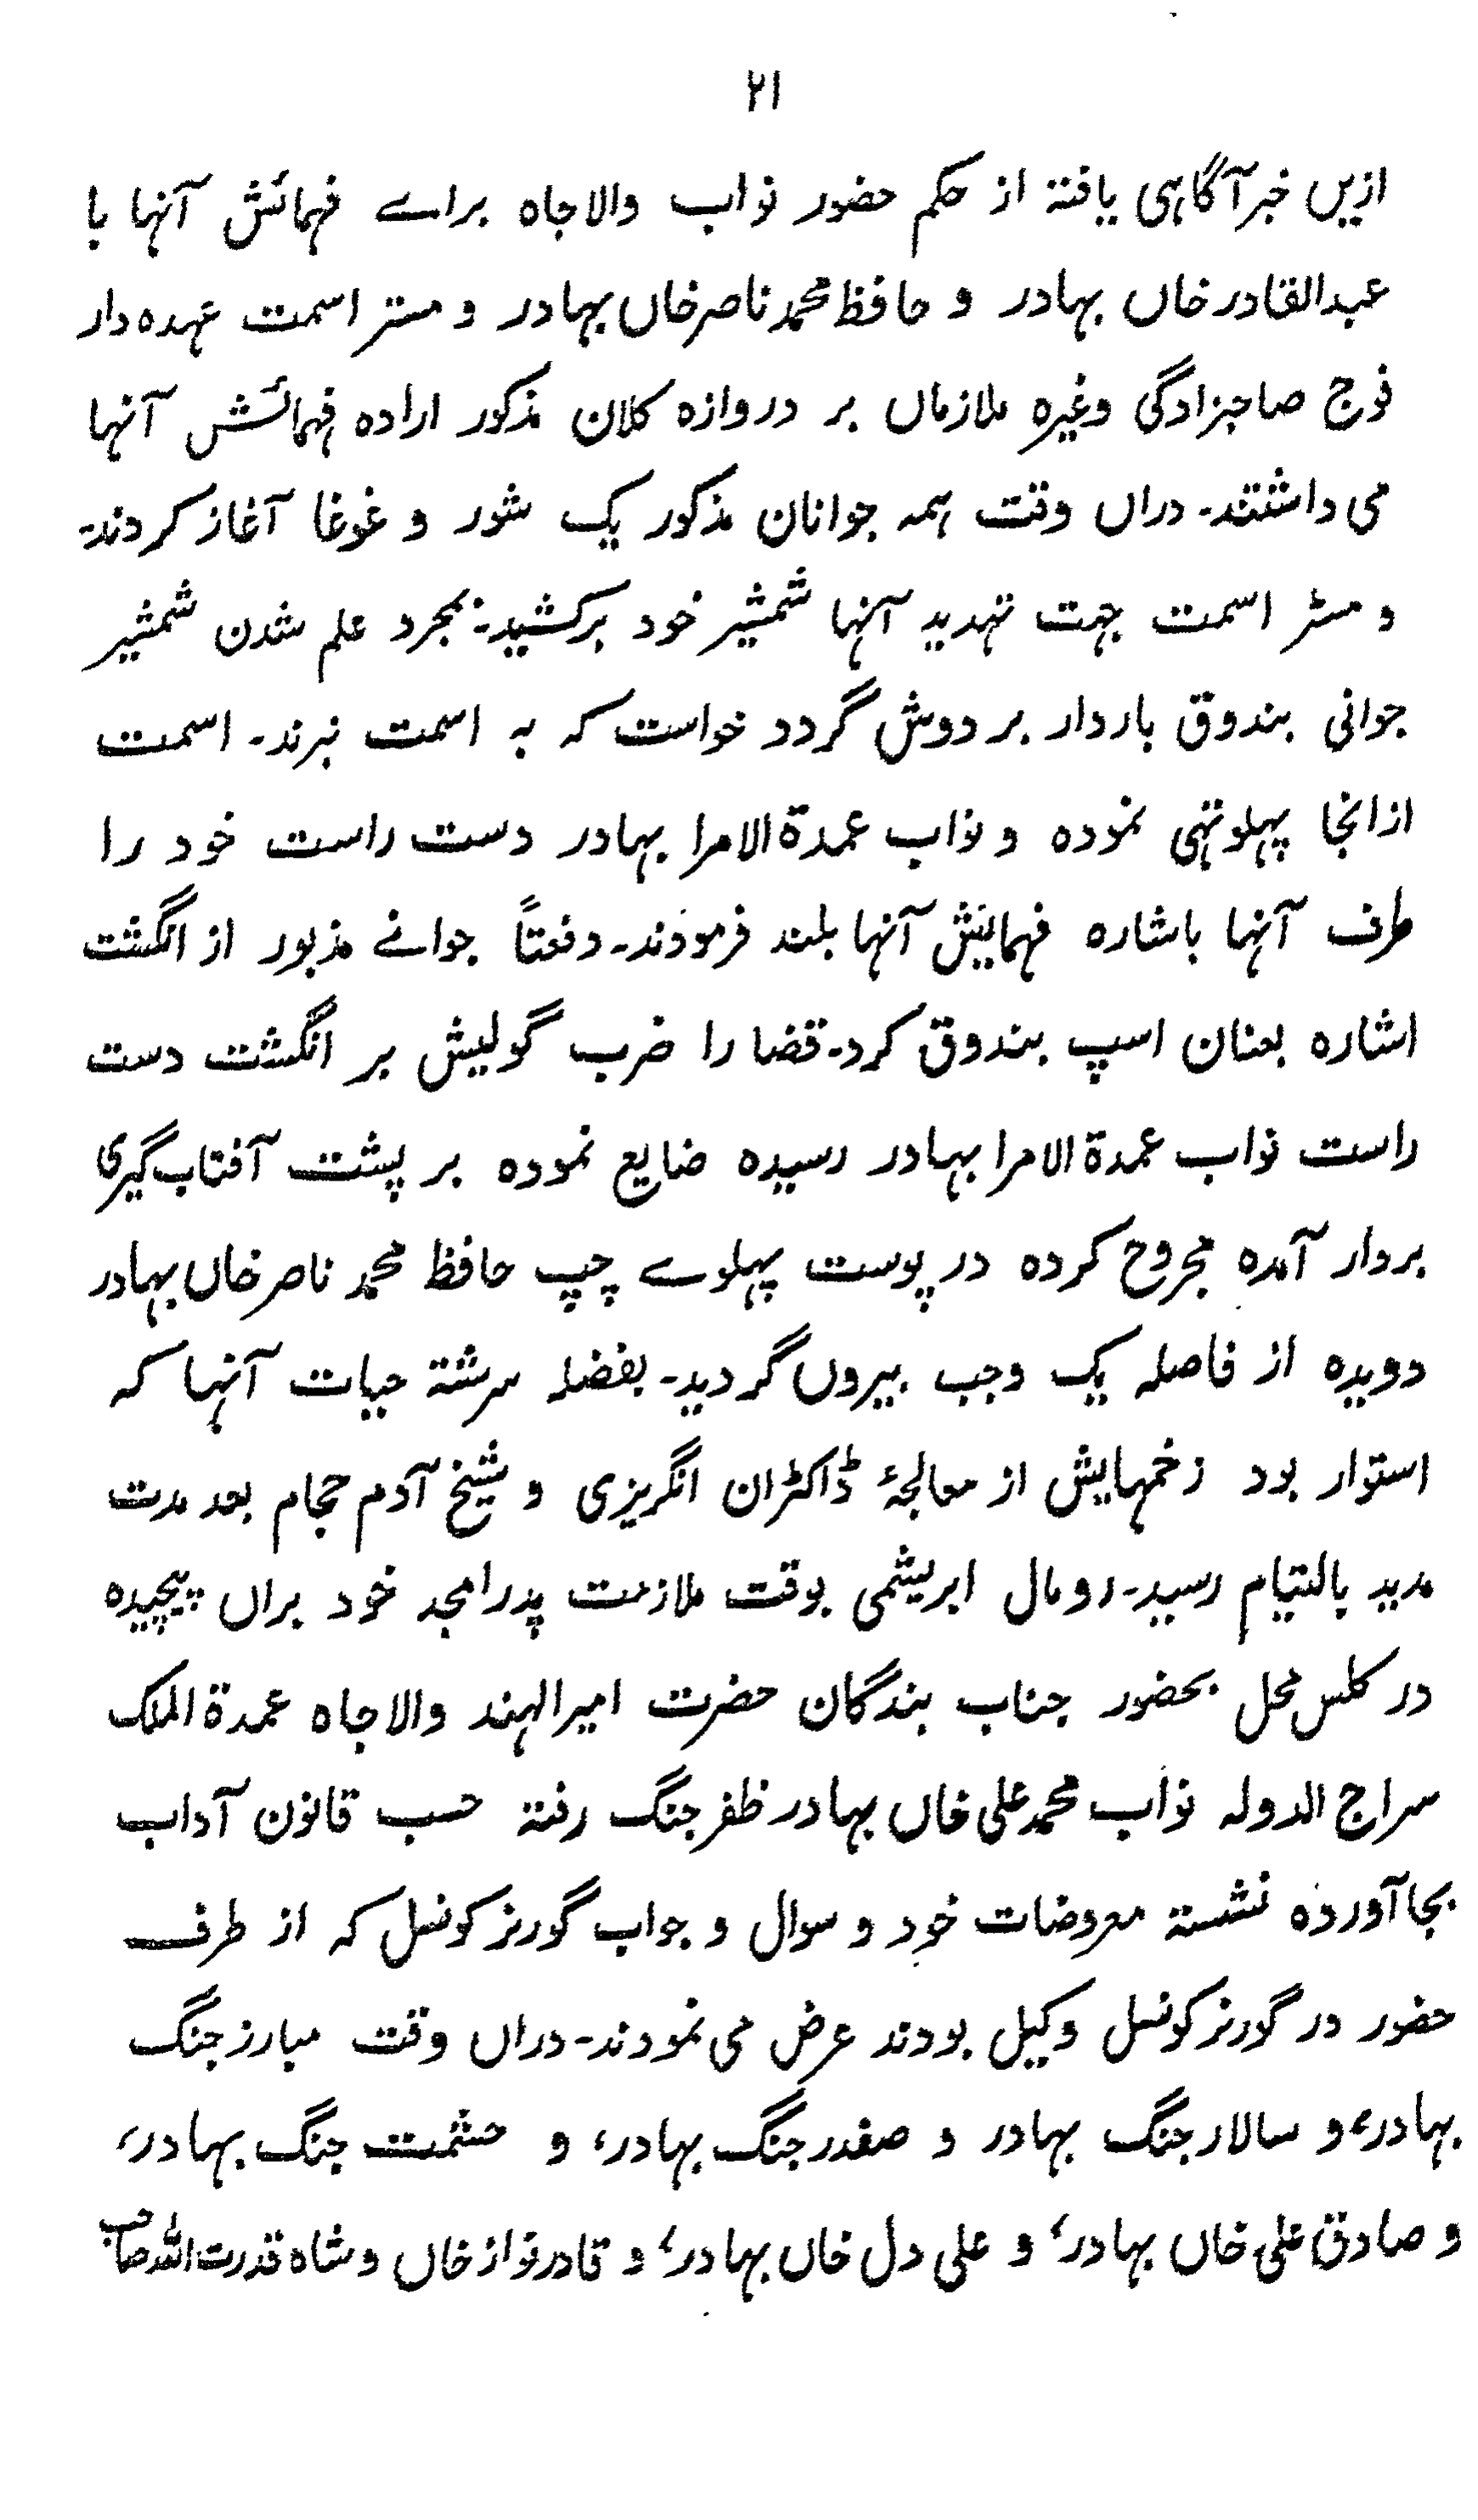 ۲۱
ازیں خبر آگاہی یافتہ از حکم حضور نواب والا جاہ براے فہمائش آنہا با
عبدالقادر خاں بہادر و حافظ محمد ناصر خاں بہادر و مستر اسمت عہدہ دار
فوج صاحبزادگی وغیرہ ملازماں بر دروازہ کلان مذکور ارادہ فہمائش آنہا
می داشتند۔ دراں وقت ہمہ جوانان مذکور یک شور و غوغا آغاز کردند۔
و مسٹر اسمت جہت تہدید آنہا شمشیر خود برکشید۔ بمجرد علم شدن شمشیر
جوانی بندوق باردار بر دوش گردد خواست کہ بہ اسمت بزند۔ اسمت
ازانجا پہلوتہی نمودہ و نواب عمدۃ الامرا بہادر دست راست خود را
طرف آنہا باشارہ فہمایش آنہا بلند فرمودند۔ دفعتاً جوانے مذبور از انگشت
اشارہ بعنان اسپ بندوق کرد۔ قضا را ضرب گولیش بر انگشت دست
راست نواب عمدۃ الامرا بہادر رسیدہ ضایع نمودہ بر پشت آفتاب گیری
بردار آمدہ مجروح کردہ در پوست پہلوے چپ حافظ محمد ناصر خاں بہادر
دویدہ از فاصلہ یک وجب بیروں گردید۔ بفضلہ سرشتہ حیات آنہا کہ
استوار بود زخمہایش از معالجۂ ڈاکٹران انگریزی و شیخ آدم حجام بعد مدت
مدید بالتیام رسید۔ رومال ابریشمی بوقت ملازمت پدر امجد خود براں پیچیدہ
در کلس محل بحضور جناب بندگان حضرت امیر الہند والا جاہ عمدۃ الملک
سراج الدولہ نواب محمد علی خاں بہادر ظفر جنگ رفتہ حسب قانون آداب
بجا آوردہ نشستہ معروضات خود و سوال و جواب گورنر کونسل کہ از طرف
حضور در گورنر کونسل وکیل بودند عرض می نمودند۔ دراں وقت مبارز جنگ
بہادر، و سالار جنگ بہادر و صفدر جنگ بہادر، و حشمت جنگ بہادر،
و صادق علی خاں بہادر، و علی دل خاں بہادر، و قادر نواز خاں و شاہ قدرت اللہ صاحب